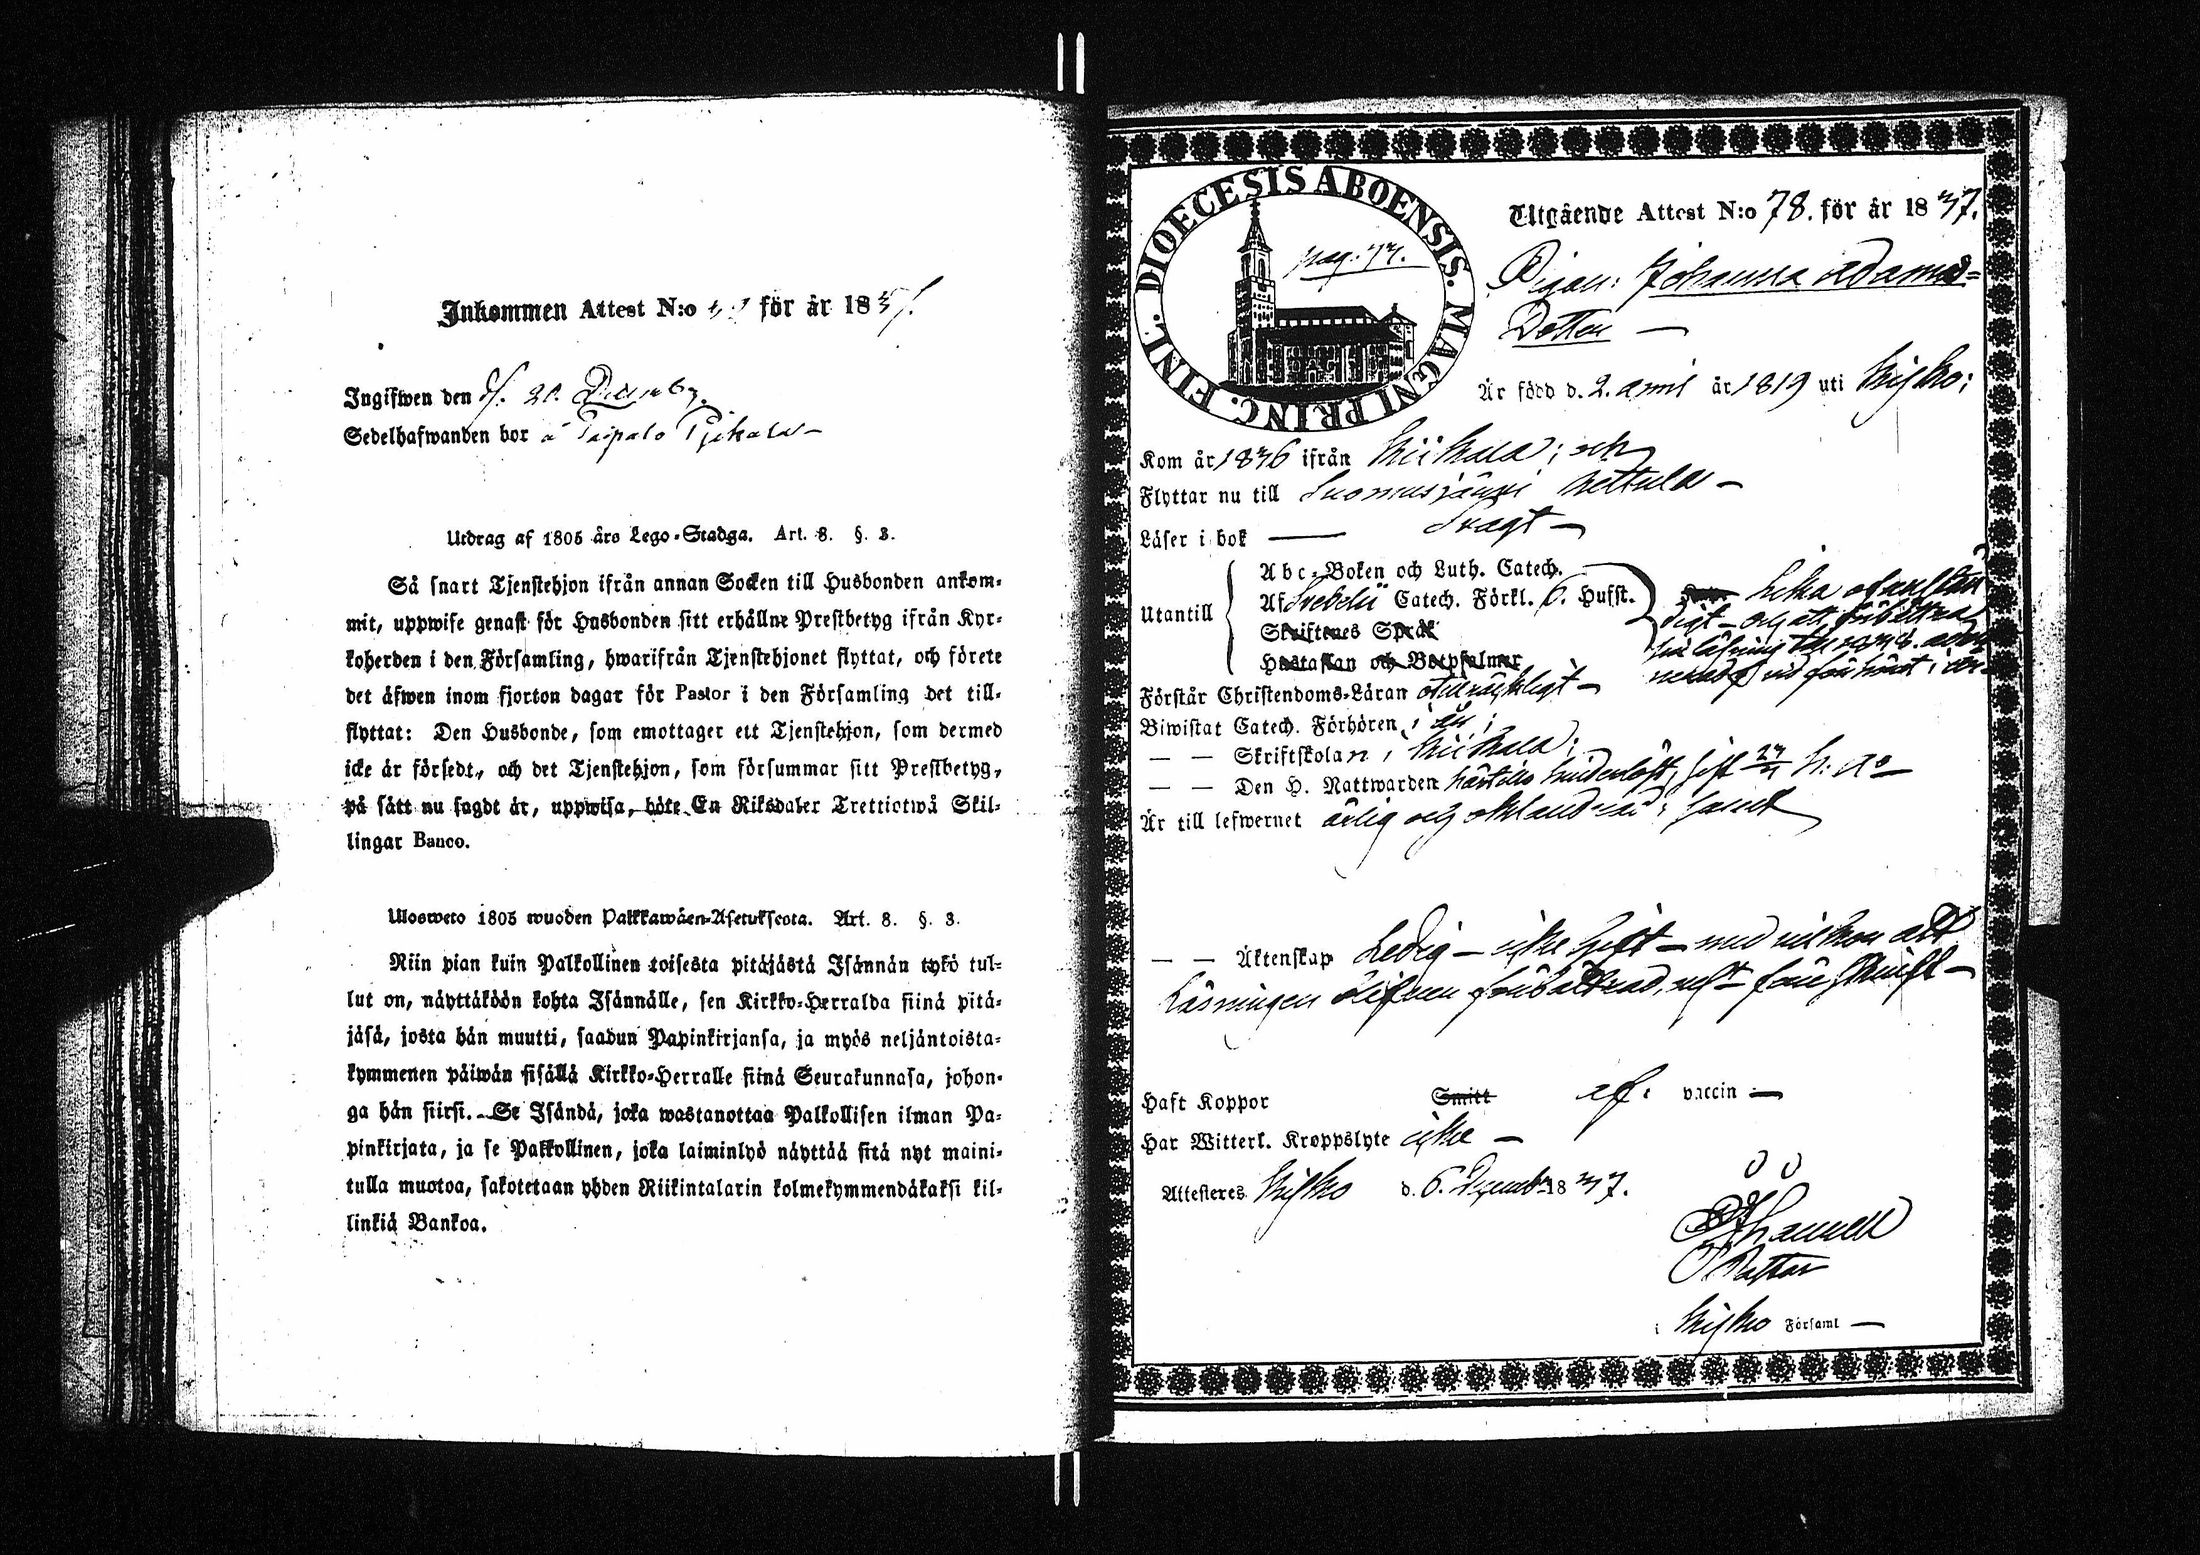 Inkommen Attest N:o för år 18
Ingifwen den d. 20. Decemb.
Sedelhafwanden bor å Taipale
Utdrag af 1805 års Lego-Stadga. Art. 8. §. 3.
Så snart Tjenstehjon ifrån annan Socken till Husbonden ankom-
mit, uppwise genast för Husbonden sitt erhållne Prestbetyg ifrån Kyr-
koherden i den Församling, hwarifrån Tjenstehjonet flyttat, och förete
det äfwen inom fjorton dagar för Pastor i den Församling det till-
flyttat: Den Husbonde, som emottager ett Tjenstehjon, som dermed
icke är försedt, och det Tjenstehjon, som försummar sitt Prestbetyg,
på sätt nu sagdt är, uppwisa, böte En Riksdaler Trettiotwå Skil-
lingar Banco.
Ulosweto 1805 wuoden Palkkawäen-Asetuksesta. Art. 8. §. 3.
Niin pian kuin Palkollinen toisesta pitäjästä Isännän tykö tul-
lut on, näyttäköön kohta Isännälle, sen Kirkko-Herralda siinä pitä-
jäsä, josta hän muutti, saadun Papinkirjansa, ja myös neljäntoista-
kymmenen päiwän sisällä Kirkko-Herralle siinä Seurakunnasa, johon-
ga hän siirsi. Se Isändä, joka wastanottaa Palkollisen ilman Pa-
pinkirjata, ja se Palkollinen, joka laiminlyö näyttää sitä nyt maini-
tulla muotoa, sakotetaan yhden Riikintalarin kolmekymmendäkaksi kil-
linkiä Bankoa.
DIOECESIS ABOENSIS. MAGNI PRINC. FINL.
pag: 77.
Utgående Attest N:o 78. för år 1837.
Pigan: Johanna Adams-
Dotter —
Är född d. 2. April år 1819 uti Kisko;
Kom år 1836 ifrån Kiikala; och
Flyttar nu till Suomusjärvi Kettula —
Läser i bok — Svagt —
Utantill
Abc-Boken och Luth. Catech.
Af Svebelii Catech. Förkl. 6. Hufst.
Skriftenes Språk
Hustaflan och Botpsalmer
lika ofullstän
digt — och att förbättra
sin läsning
Förstår Christendoms-Läran otillräckligt —
Biwistat Catech. Förhören, i år;
— — Skriftskolan, i Kiikala;
— — Den H. Nattwarden härtills hinderlöst, sist h: a:
Är till lefwernet ärlig och oklandrad; samt
— — Äktenskap Ledig — icke gift — med vilkor att
Läsningen blifver förbättrad,
Haft Koppor Smitt ef: vaccin —
Har Witterl. Kroppslyte icke —
Attesteres Kisko d. 6. December 1837.
Pastor
i Kisko Församl —